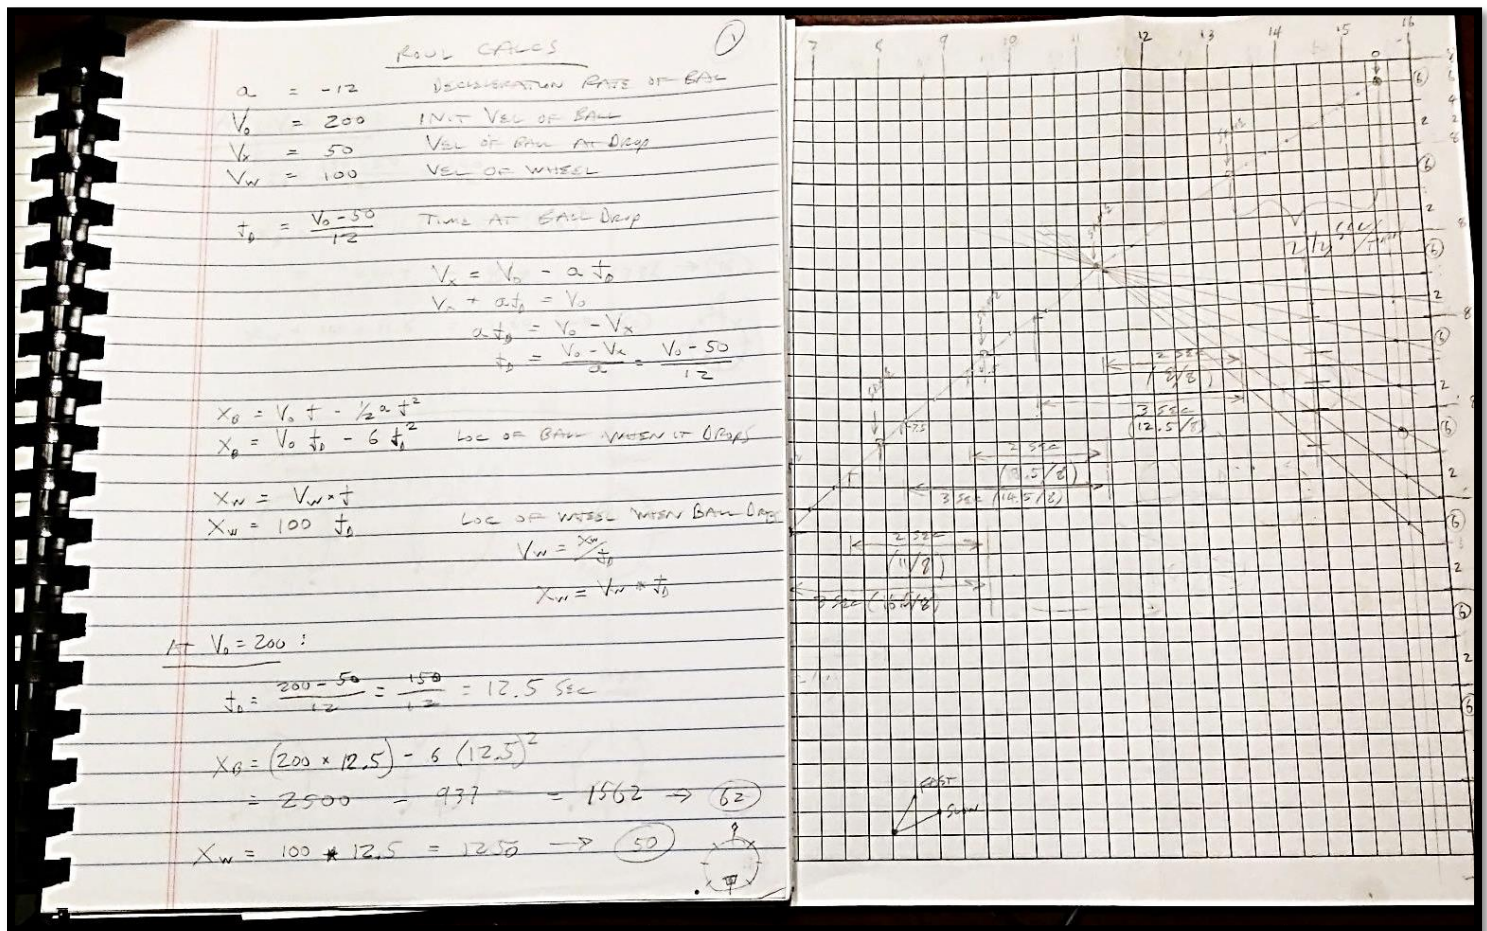 ROUL CALCS
1
a = -12 DECELERATION RATE OF BAL
V₀ = 200 INIT VEL OF BALL
Vₓ = 50 VEL OF BALL AT DROP
V_W = 100 VEL OF WHEEL
t_D = V₀ - 50 / 12 TIME AT BALL DROP
Vₓ = V₀ - a t_D
Vₓ + a t_D = V₀
a t_D = V₀ - Vₓ
t_D = V₀ - Vₓ / a = V₀ - 50 / 12
X_B = V₀ t - ½ a t²
X_B = V₀ t_D - 6 t_D² LOC OF BALL WHEN IT DROPS
X_W = V_W × t
X_W = 100 t_D LOC OF WHEEL WHEN BALL DROPS
V_W = X_W / t_D
X_W = V_W * t_D
AT V₀ = 200 :
t_D = 200 - 50 / 12 = 150 / 12 = 12.5 SEC
X_B = (200 × 12.5) - 6 (12.5)²
= 2500 - 937 = 1562 → 62
X_W = 100 * 12.5 = 1250 → 50
7 8 9 10 11 12 13 14 15 16
2 SEC
3 SEC
(12.5/8)
2 SEC
3 SEC (14.5/8)
2 SEC
(11/8)
FAST
SLOW